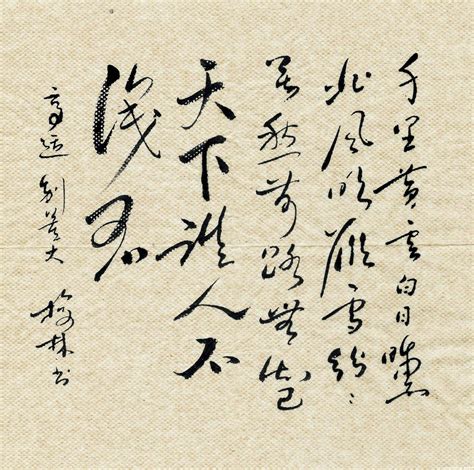 千里黄云白日曛
北风吹雁雪纷纷
莫愁前路無知己
天下谁人不
识君
高适别董大
林书